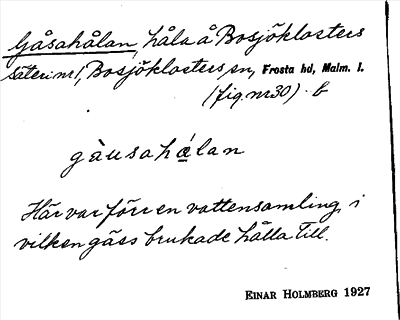 Gåsahålan, håla å Bosjöklosters
säteri nr 1, Bosjöklosters sn, Frosta hd, Malm. l.
(fig. nr 30) . b
gàusahálan
Här var förr en vattensamling, i
vilken gäss brukade hålla till.
EINAR HOLMBERG 1927